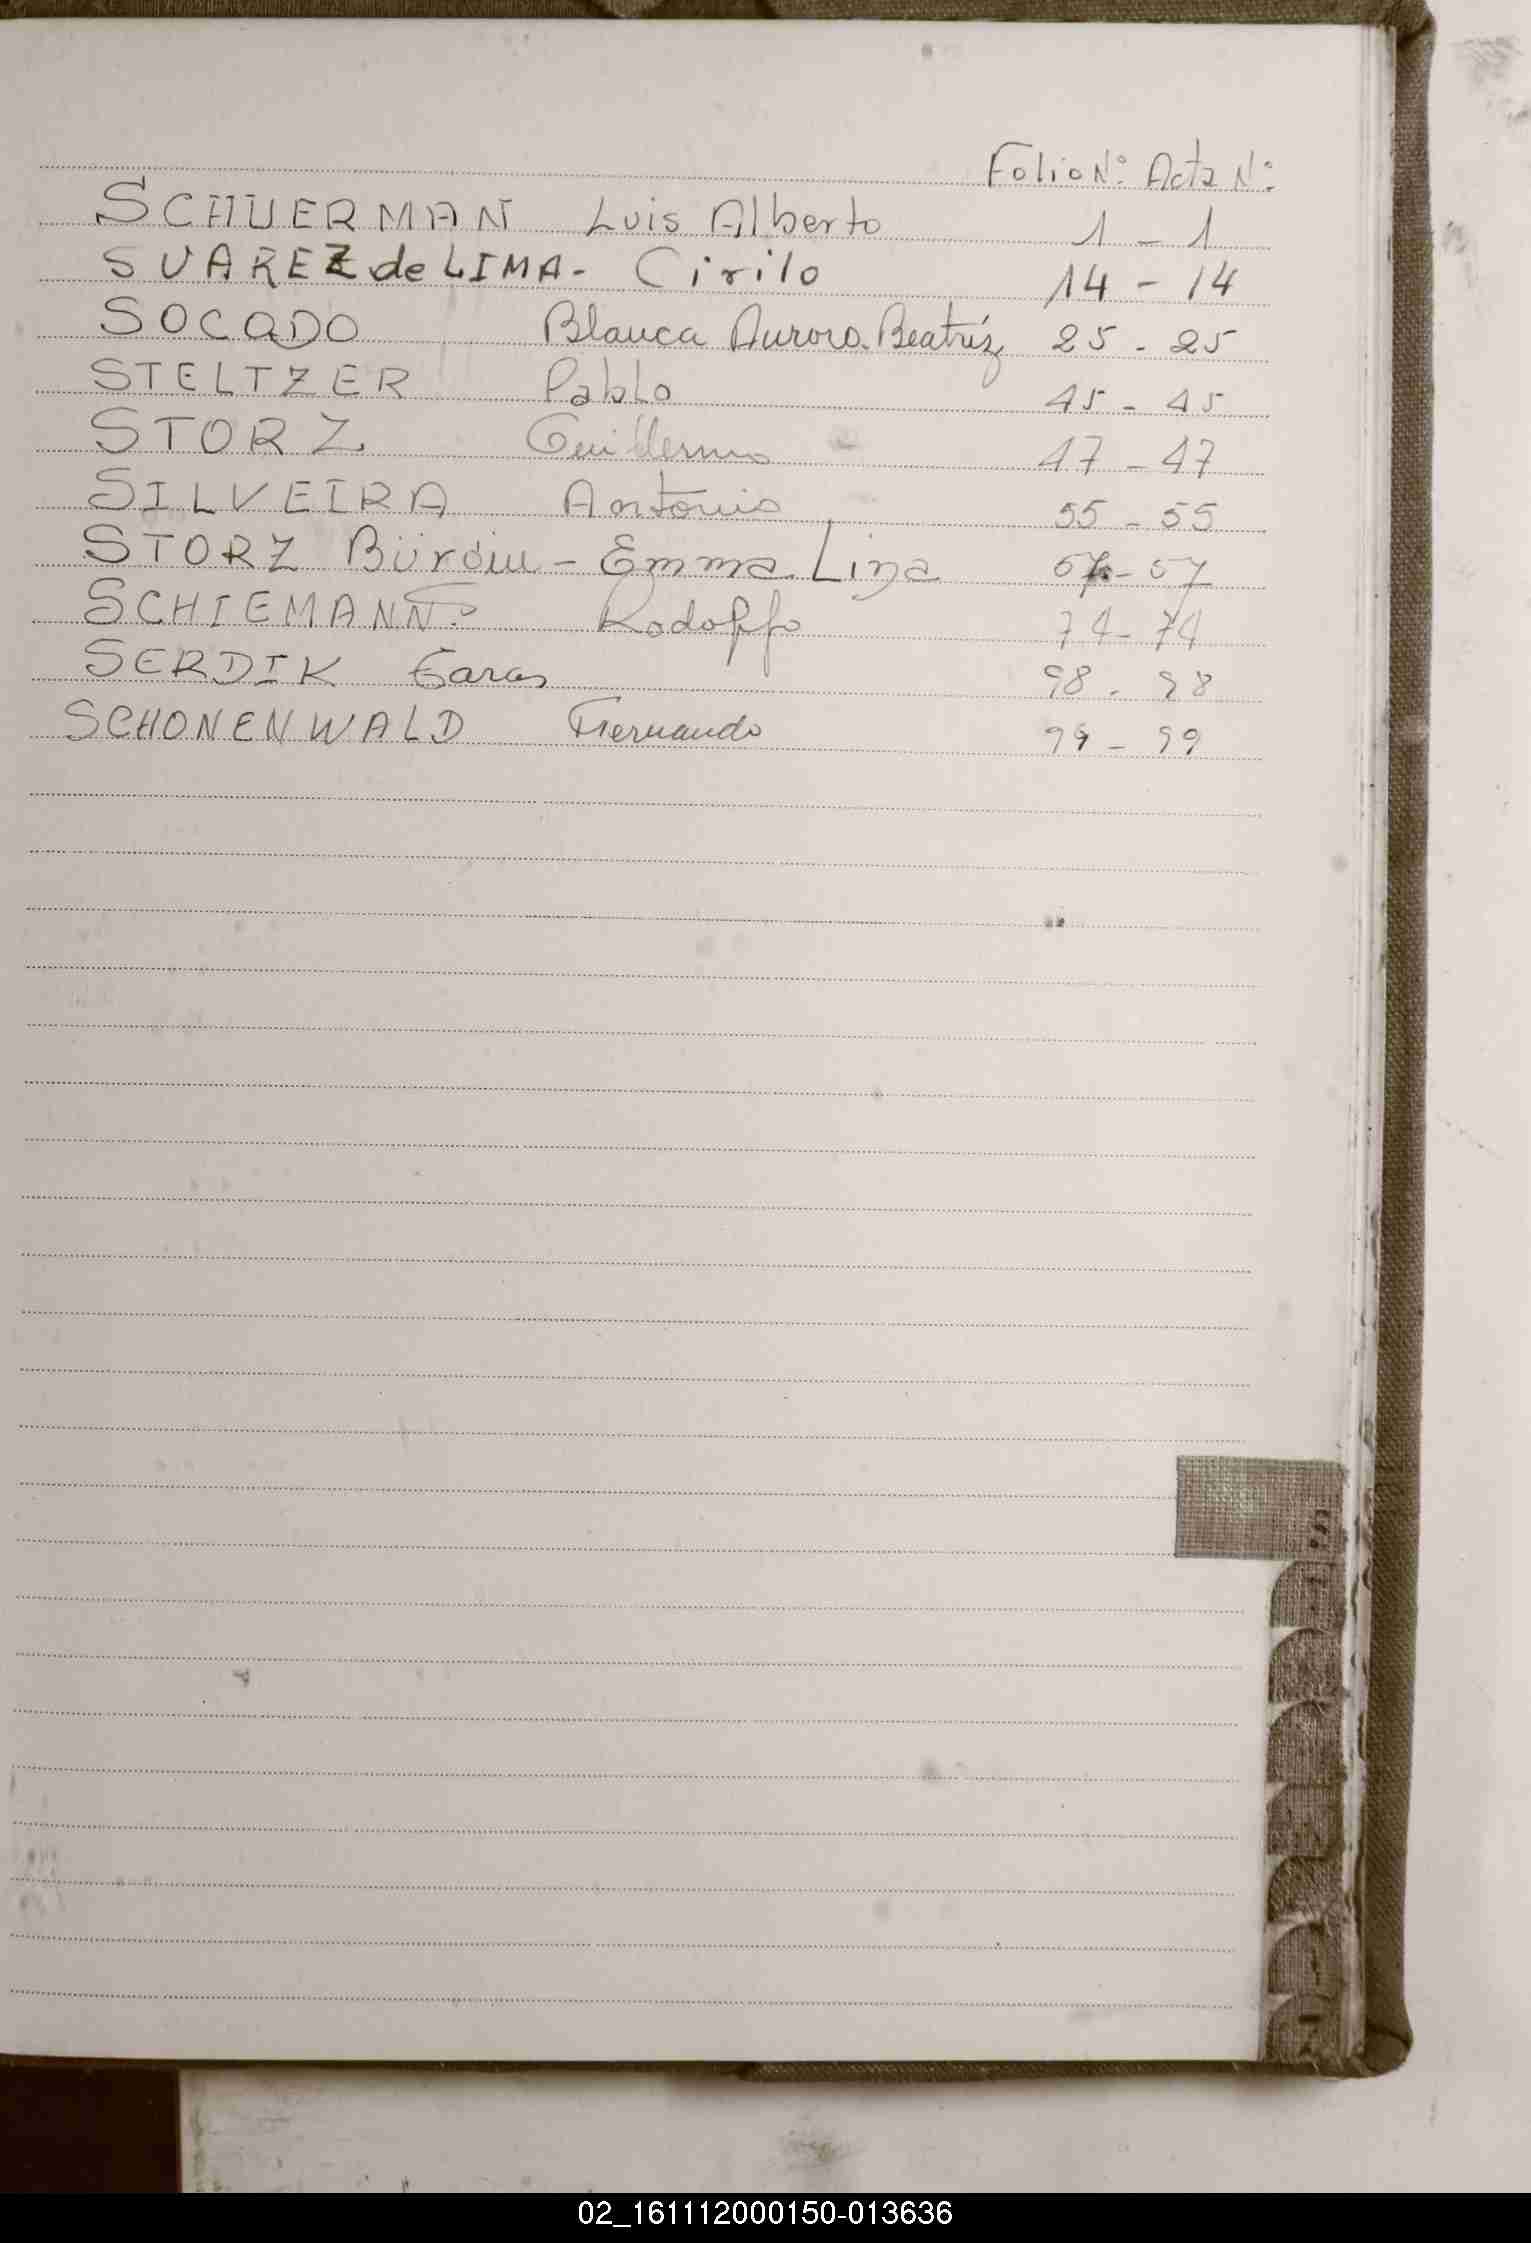 Folio Nº: Acta Nº:
SCHUERMAN Luis Alberto 1 - 1
SUAREZ de LIMA - Cirilo 14 - 14
SOCADO Blanca Aurora Beatríz 25 - 25
STELTZER Pablo 45 - 45
STORZ Guillermo 47 - 47
SILVEIRA Antonio 55 - 55
STORZ - Emma Lina 57 - 57
SCHIEMANN Rodolfo 74 - 74
SERDIK Taras 98 - 98
SCHONENWALD Fernando 99 - 99
S
02_161112000150-013636